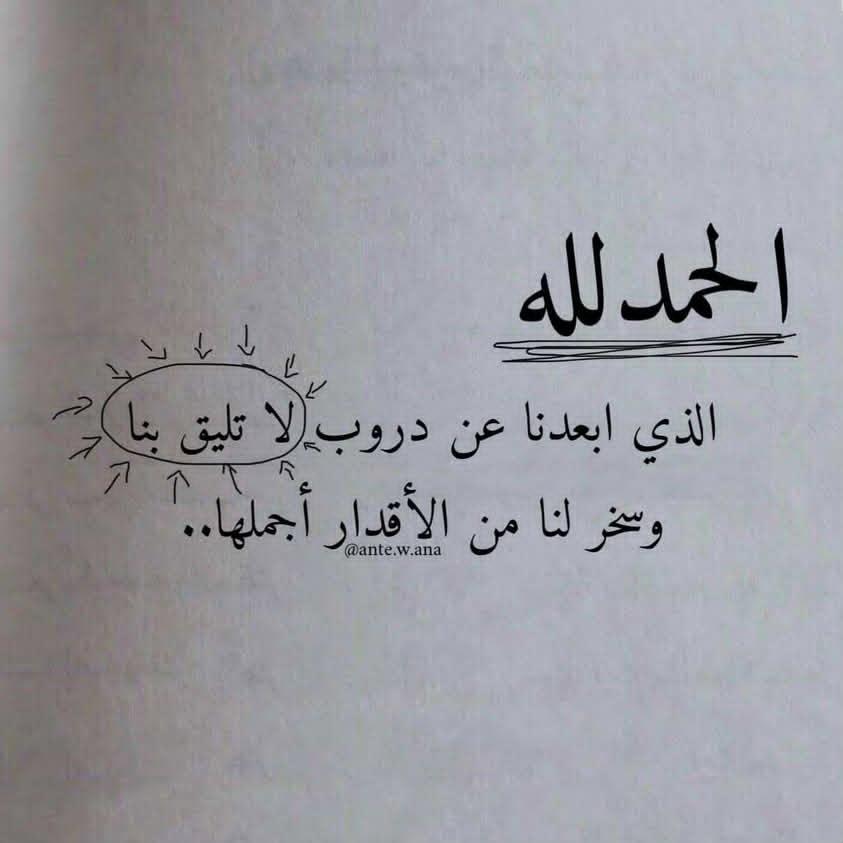 الحمدلله
الذي ابعدنا عن دروب لا تليق بنا
وسخر لنا من الأقدار أجملها..
@ante.w.ana